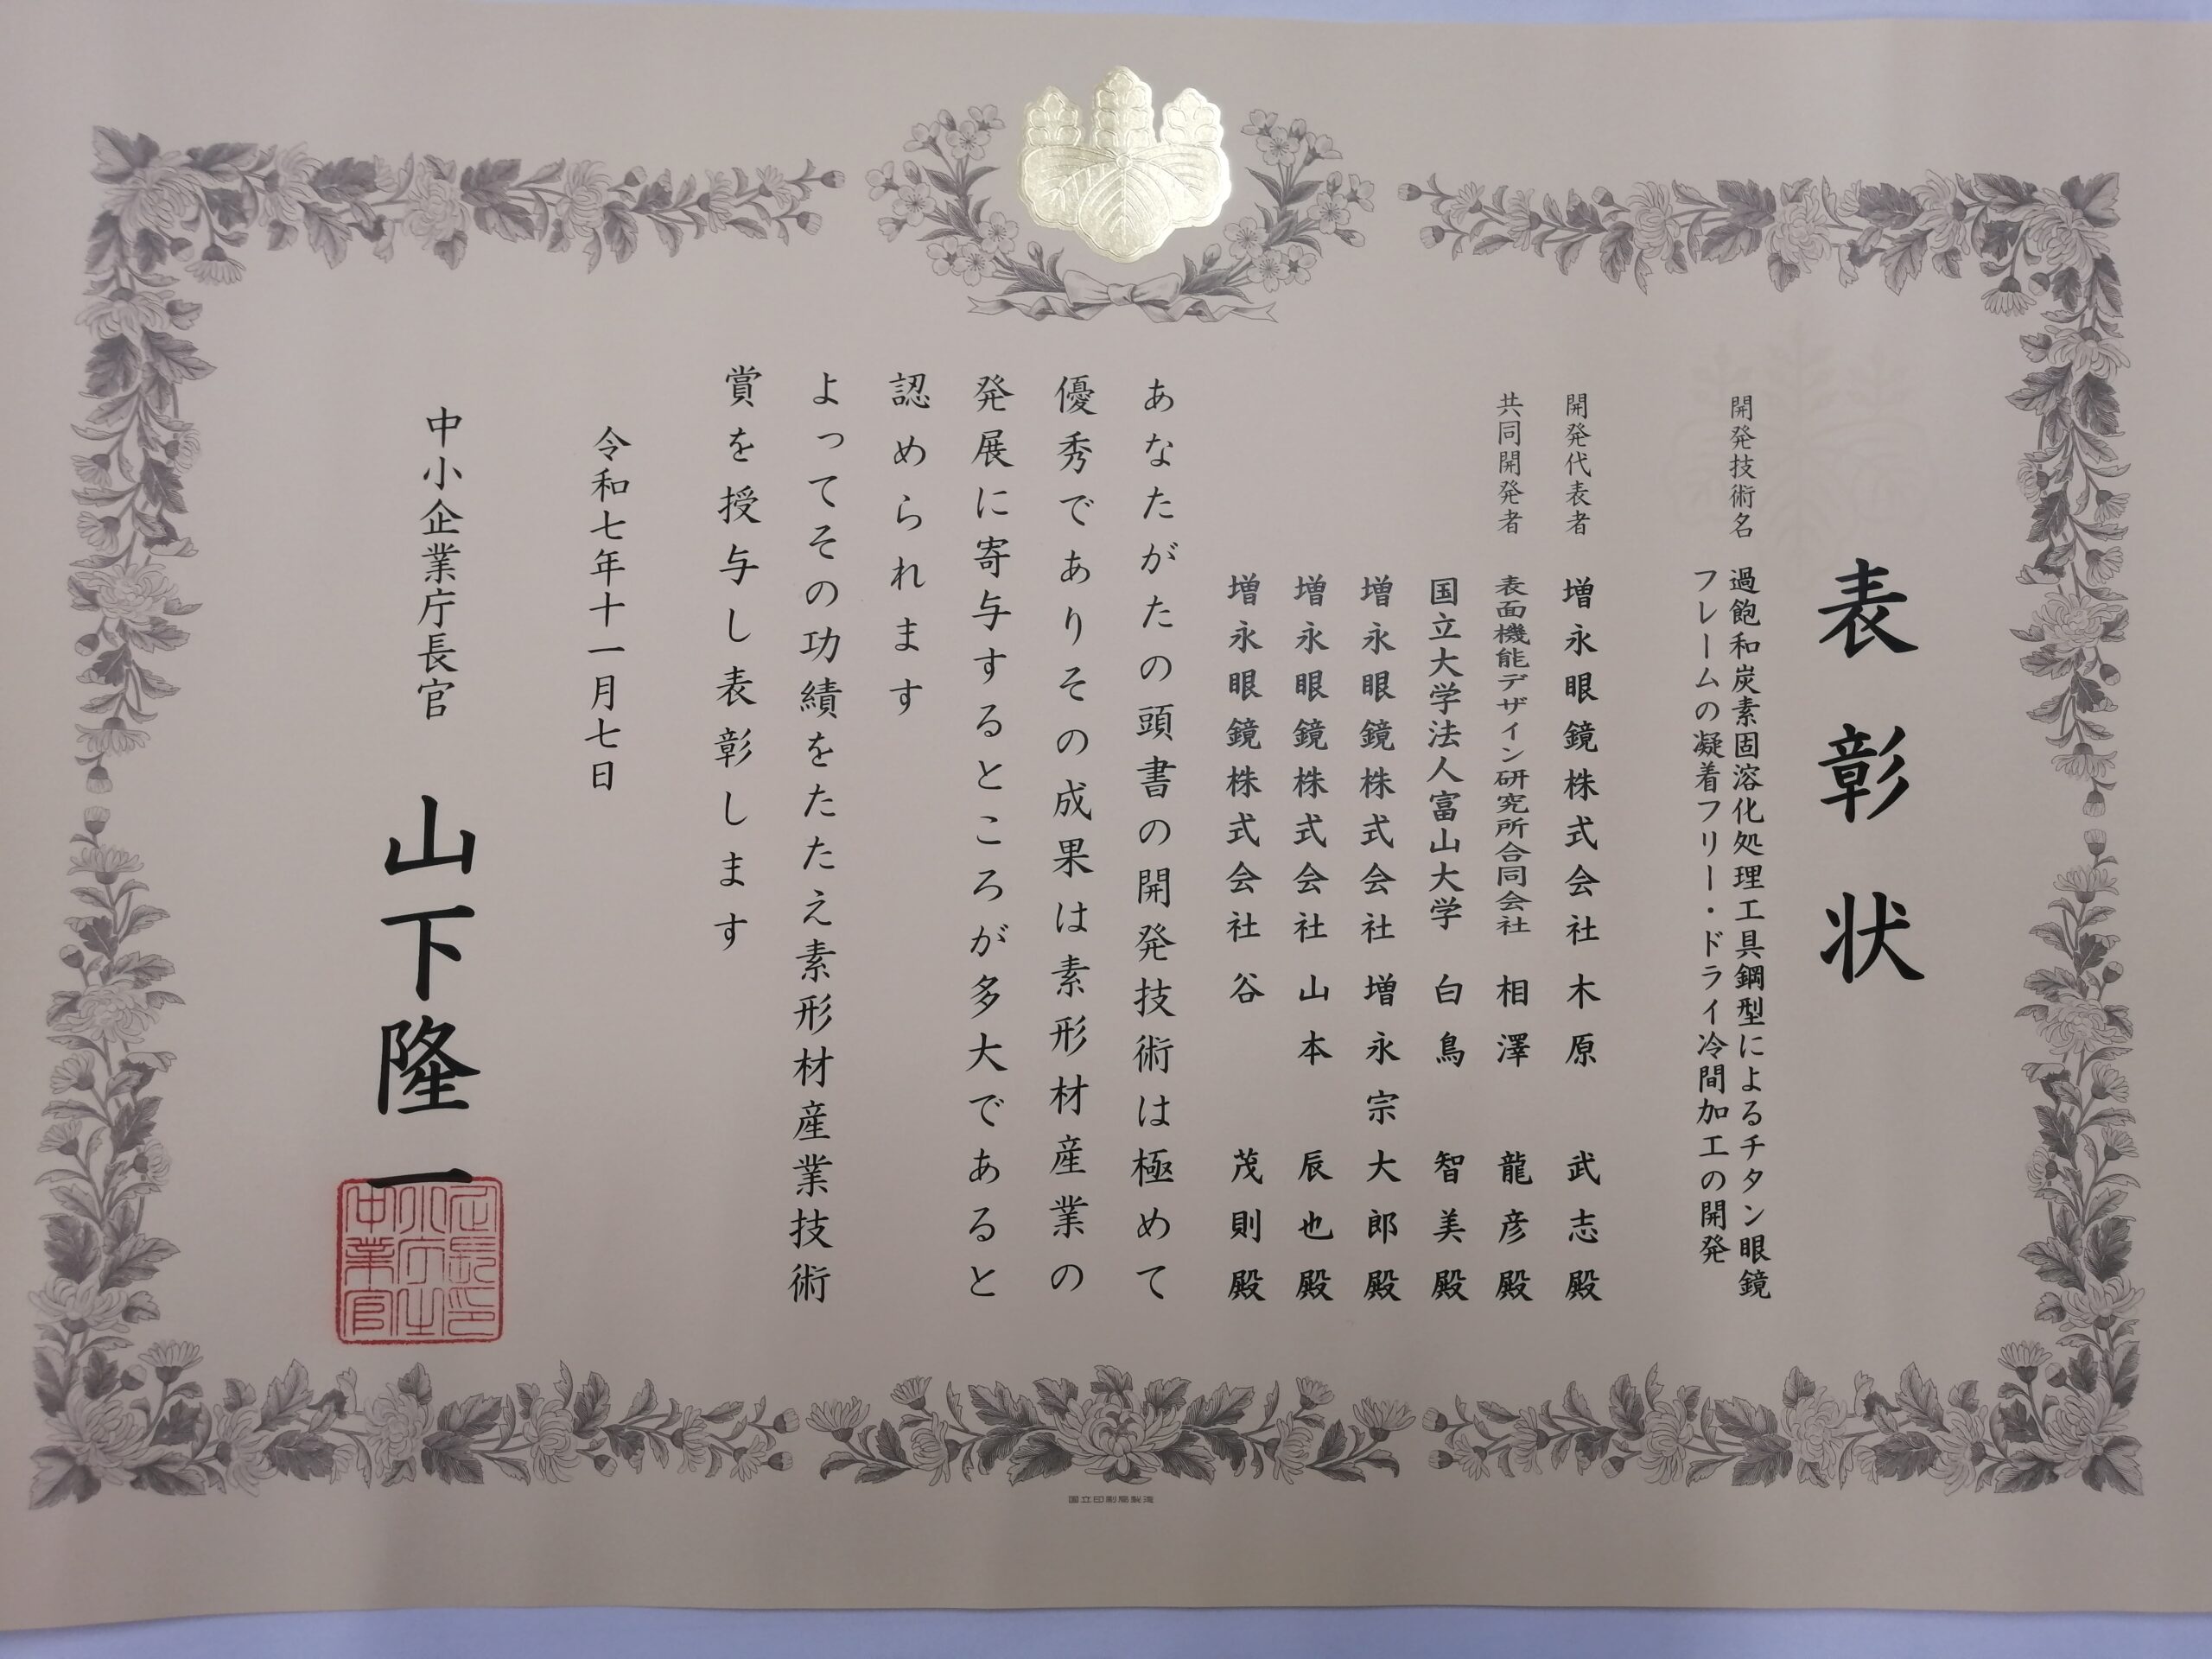 表彰状
開発技術名 過飽和炭素固溶化処理工具鋼型によるチタン眼鏡
フレームの凝着フリー・ドライ冷間加工の開発
開発代表者 増永眼鏡株式会社 木原 武志 殿
共同開発者 表面機能デザイン研究所合同会社 相澤 龍彦 殿
国立大学法人富山大学 白鳥 智美 殿
増永眼鏡株式会社 増永宗大郎 殿
増永眼鏡株式会社 山本 辰也 殿
増永眼鏡株式会社 谷 茂則 殿
あなたがたの頭書の開発技術は極めて
優秀でありその成果は素形材産業の
発展に寄与するところが多大であると
認められます
よってその功績をたたえ素形材産業技術
賞を授与し表彰します
令和七年十一月七日
中小企業庁長官 山下隆一
国立印刷局製造